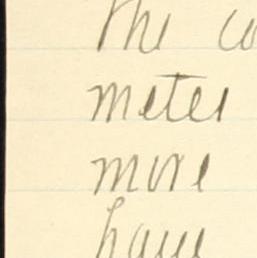 The co
meter
more
have